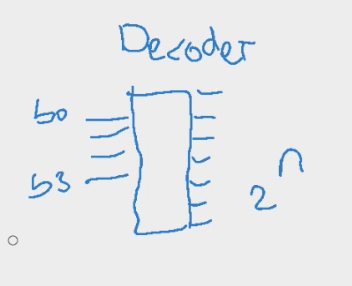 Decoder
b0
b3
2^n